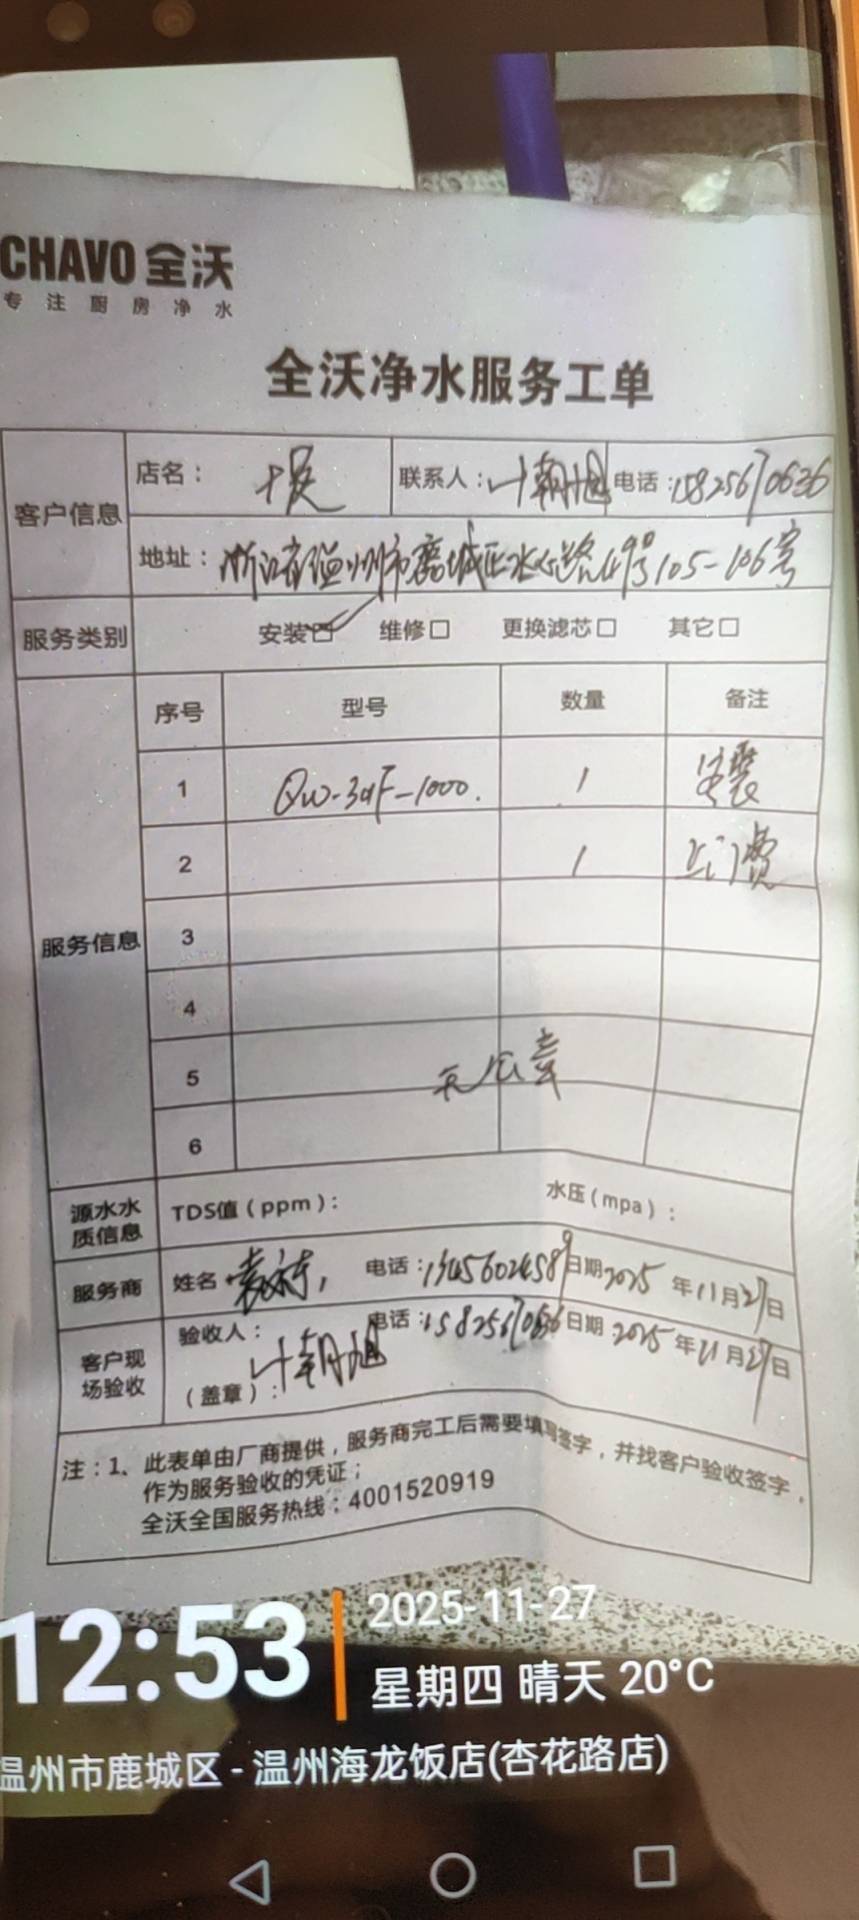 CHAVO 全沃
专注厨房净水
全沃净水服务工单
客户信息
店名: 联系人:叶朝旭 电话:15825670636
地址:浙江省温州市鹿城区水心路 号105-106号
服务类别 安装☑ 维修□ 更换滤芯□ 其它□
服务信息
序号 型号 数量 备注
1 1 安装
2 1 上门费
3
4
5 无公章
6
源水水质信息 TDS值(ppm): 水压(mpa):
服务商 姓名 电话: 日期2025年11月27日
客户现场验收 验收人: 叶朝旭 电话:15825670636 日期:2025年11月27日
(盖章):
注:1、此表单由厂商提供,服务商完工后需要填写签字,并找客户验收签字,
作为服务验收的凭证;
全沃全国服务热线:4001520919
12:53
2025-11-27
星期四 晴天 20°C
温州市鹿城区-温州海龙饭店(杏花路店)